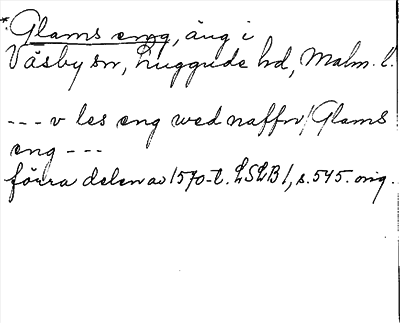 *Glams eng, äng i
Väsby sn, Luggude hd, Malm. l.
--- v les eng wed naffn/Glams
eng ---
förra delen av 1570-t. LSLB 1, s. 545. orig.